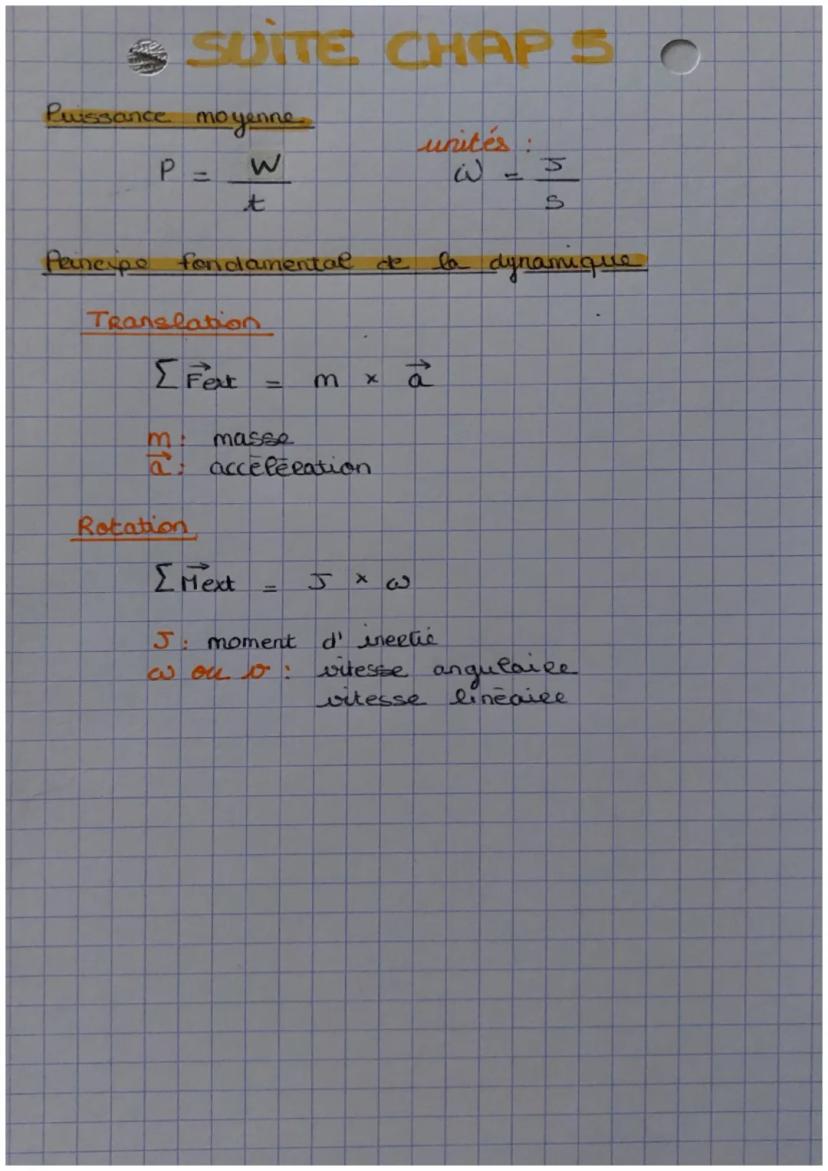 SUITE CHAP 5
Puissance moyenne
P = W / t
unités :
W = J / s
Principe fondamental de la dynamique
Translation
Σ F⃗ext = m × a⃗
m : masse
a⃗ : accélération
Rotation
Σ M⃗ext = J × ω
J : moment d'inertie
ω ou v : vitesse angulaire
vitesse linéaire